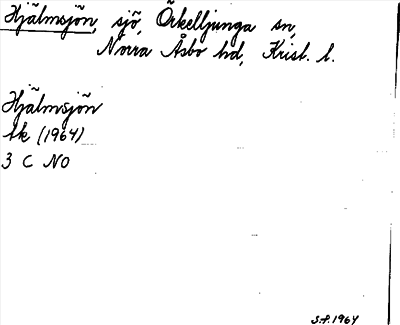 Hjälmsjön, sjö, Örkelljunga sn,
Norra Åsbo hd, Krist. l.
Hjälmsjön
tk (1964)
3 C NO
S.F. 1964